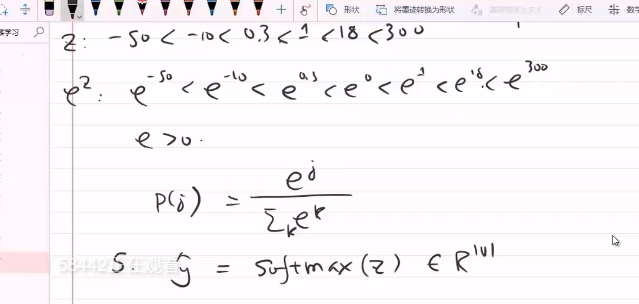 形状 将墨迹转换为形状 标尺 数学
学习
z: -50 < -10 < 0.3 < 1 < 18 < 300
e^z: e^-50 < e^-10 < e^0.3 < e^0 < e^1 < e^18 < e^300
e > 0.
P(j) = e^j / Σ_k e^k
5. ŷ = softmax(z) ∈ R^|V|